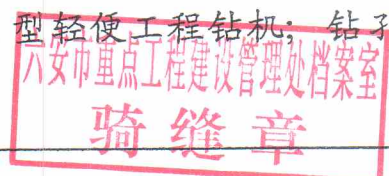 型轻便工程钻机；钻孔
六安市重点工程建设管理处档案室
骑缝章